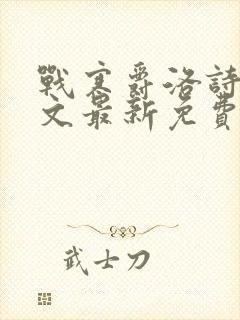 戰寒爵洛詩
文最新免費
武士刀